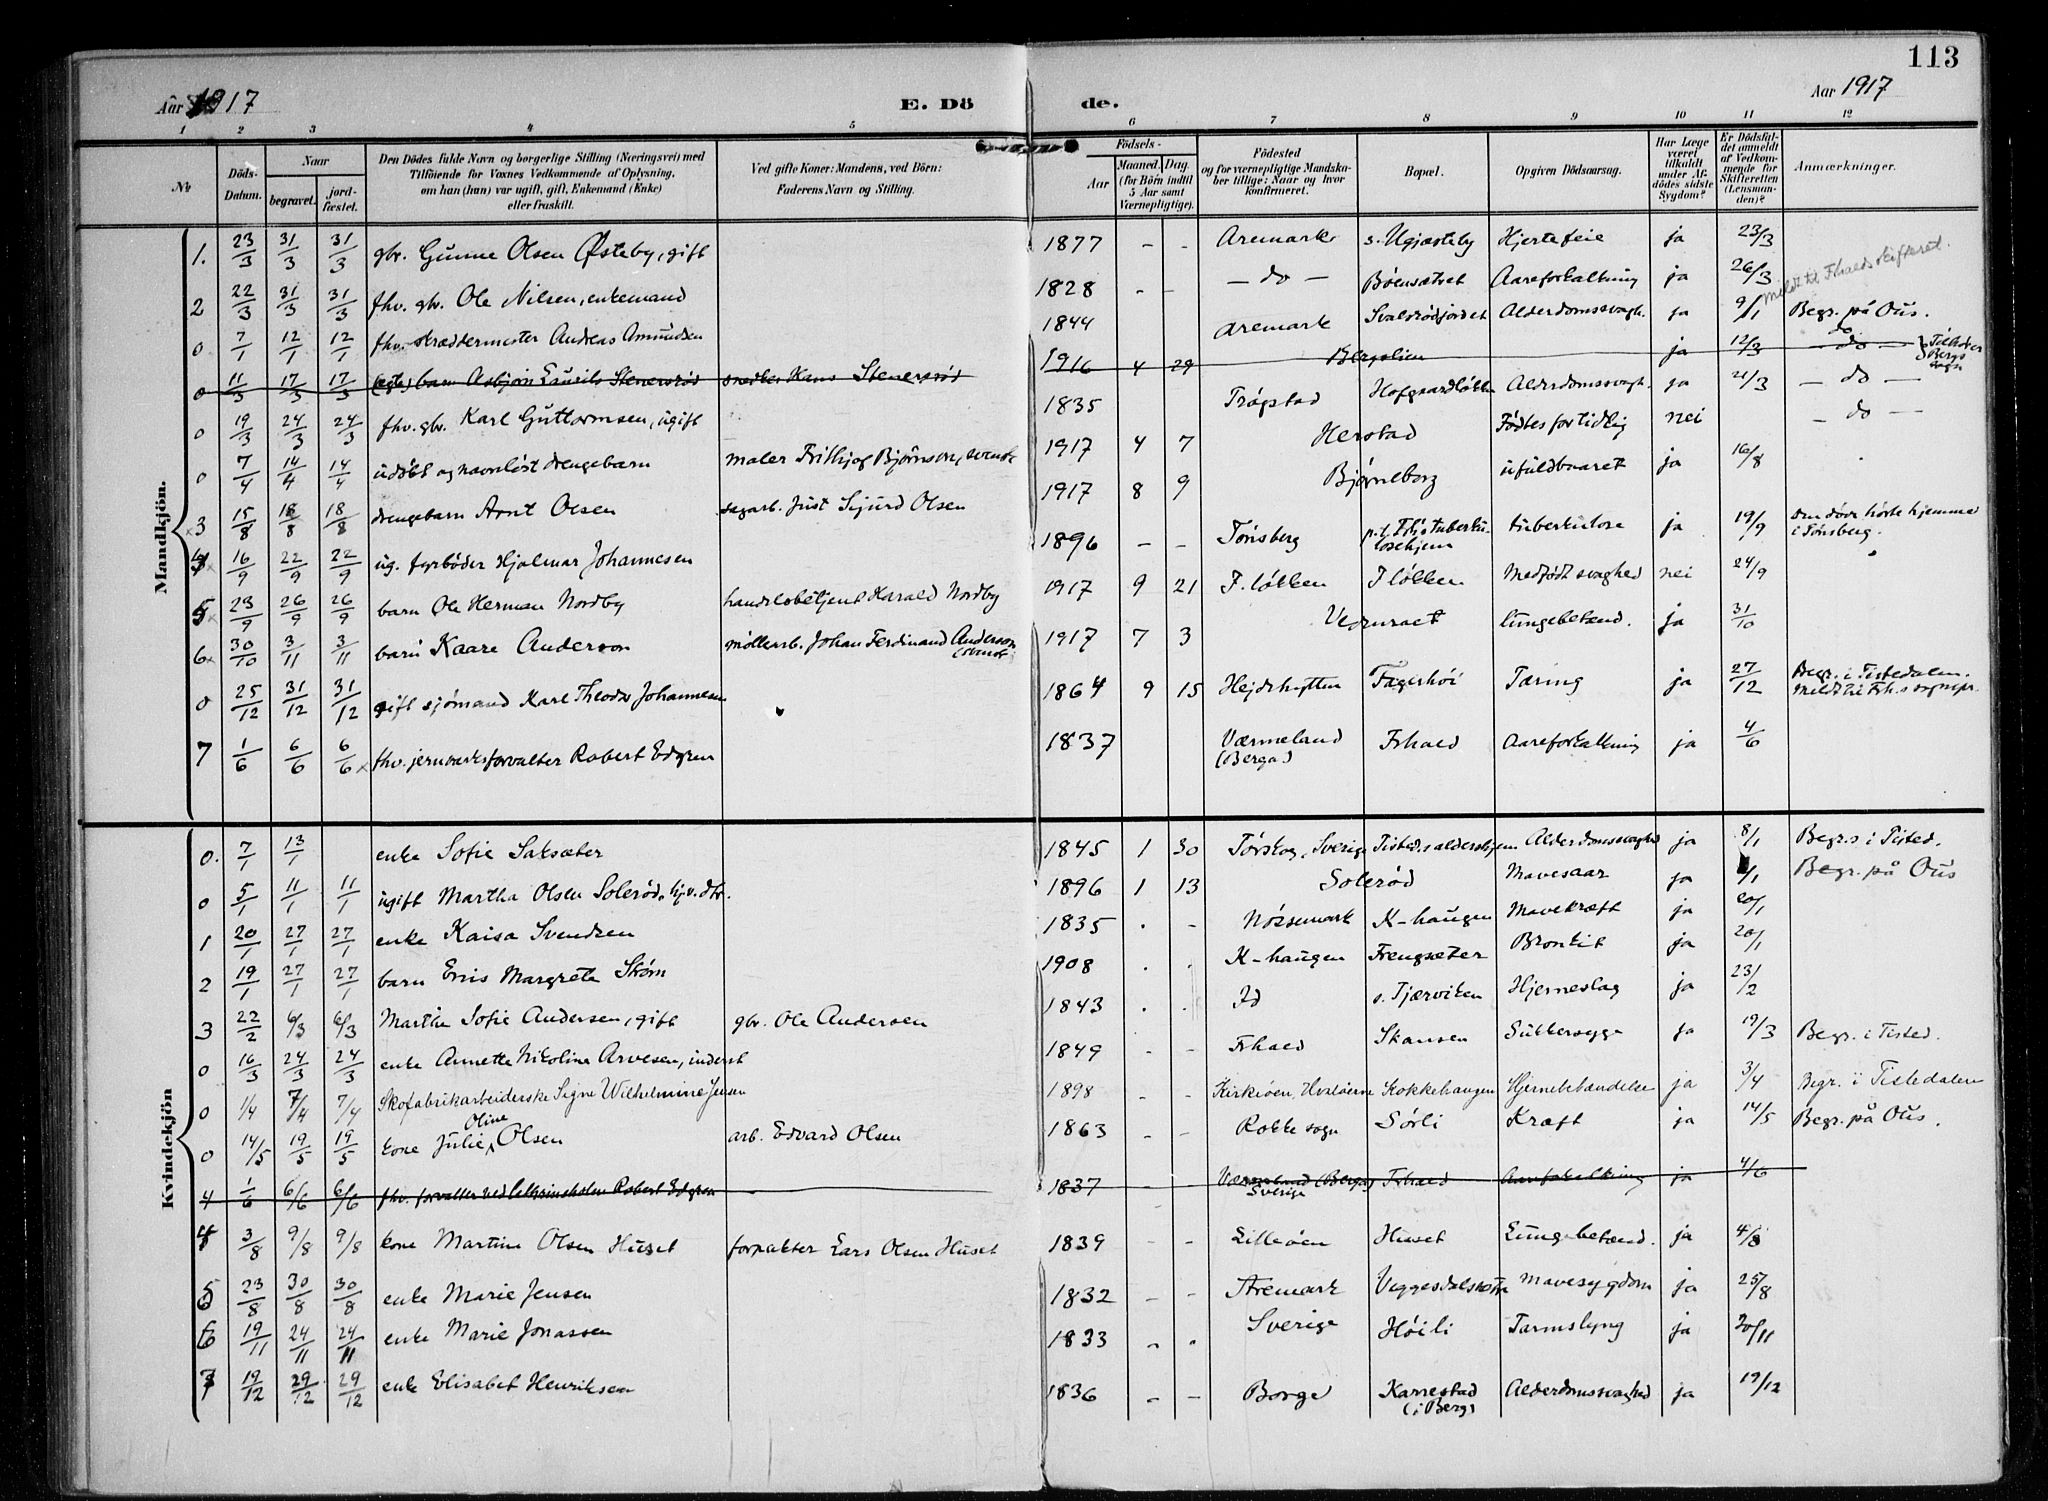 113
Aar 1917 E. Dö de. Aar 1917
1 2 3 4 5 6 7 8 9 10 11 12
No
Döds-Datum.
Naar
begravet.
jord-fæstet.
Den Dödes fulde Navn og borgerlige Stilling (Næringsvei) med Tilföiende for Voxnes Vedkommende af Oplysning, om han (hun) var ugift, gift, Enkemand (Enke) eller fraskilt.
Ved gifte Koner: Mandens, ved Börn: Faderens Navn og Stilling.
Födsels-
Aar
Maaned. Dag.
(for Börn indtil 5 Aar samt Værnepligtige).
Födested og for værnepligtige Mandskaber tillige: Naar og hvor konfirmeret.
Bopæl.
Opgiven Dödsaarsag.
Har Læge været tilkaldt under Afdödes sidste Sygdom?
Er Dödsfaldet anmeldt af Vedkommende for Skifteretten (Lensmanden)?
Anmærkninger.
Mandkjön.
1. 23/3 31/3 31/3 gbr. Gunne Olsen Østeby, gift 1877 - - Aremark s. Ugjesteby Hjertefeie ja 23/3
2 22/3 31/3 31/3 fhv. gbr. Ole Nilsen, enkemand 1828 - - - do - Böensætret Aareforkalkning ja 26/3 meldt til Fhalds skifteret.
0 7/1 12/1 12/1 fhv. skræddermester Andreas Amundsen 1844 Aremark Svalerödjordet Alderdomssvagh. ja 9/1 Begr. på Ous.
0 11/3 17/3 17/3 (egte) barn Asbjörn Laurits Stenersröd snedker Hans Stenersröd 1916 4 29 Bergslien ja 12/3 - do - Tilhörer Bergs sogn
0 19/3 24/3 24/3 fhv. gbr. Karl Guttormsen, ugift 1835 Trögstad Hofgaardløkken Alderdomssvagh. ja 21/3 - do -
0 7/4 14/4 14/4 udöbt og navnlöst drengebarn maler Frithjof Björnson, svensk 1917 4 7 Herstad Födtes for tidlig nei - do -
3 15/8 18/8 18/8 drengebarn Arnt Olsen sagarb. Just Sigurd Olsen 1917 8 9 Björneborg ufuldbaaret ja 16/8
4 16/9 22/9 22/9 ug. fyrböder Hjalmar Johannesen 1896 - - Tönsberg p.t. Fh.s tuberkulosehjem tuberkulose ja 19/9 Den döde hörte hjemme i Tönsberg.
5 23/9 26/9 26/9 barn Ole Herman Nordby handelsbetjent Harald Nordby 1917 9 21 F. lökken F lökken Medfödt svaghed nei 24/9
6 30/10 3/11 3/11 barn Kaare Anderson möllearb. Johan Ferdinand Anderson (svensk) 1917 7 3 lungebetænd. ja 31/10
0 25/12 31/12 31/12 gift sjömand Karl Theodor Johannesen 1864 9 15 Hejdehytten Fagerhöi Tæring ja 27/12 Begr. i Tistedalen. meldt til Frh.s sognepr.
7 1/6 6/6 6/6 fhv. jernværksforvalter Robert Edgren 1837 Værmeland (Berga) Frhald Aareforkalkning ja 4/6
Kvindekjön
0. 7/1 13/1 enke Sofie Saksæter 1845 1 30 Törskog, Sverige Tisted.s aldershjem Alderdomssvaghed ja 8/1 Begr.s i Tisted.
0 5/1 11/1 11/1 ugift Martha Olsen Soleröd, hjv. dtr. 1896 1 13 Soleröd Mavesaar ja /1 Begr. på Ous
1 20/1 27/1 27/1 enke Kaisa Svendsen 1835 . - Nössemark K-haugen Mavekræft ja 20/1
2 19/1 27/1 27/1 barn Enis Margrete Skörn 1908 . . K-haugen Frengsæter Bronkit ja 20/1
3 22/2 6/3 6/3 Marthe Sofie Andersen, gift gbr. Ole Andersen 1843 . . Id s. Tjærviken Hjerneslag ja 23/2
0 16/3 24/3 24/3 enke Annette Nikoline Arvesen, inderst 1849 - - Frhald Skansen Sukkersyge ja 19/3 Begr. i Tisted.
0 1/4 7/4 7/4 Skofabrikarbeiderske Signe Wilhelmine Jensen 1898 - - Kirkeöen, Hvaløerne Kokkehaugen Hjernebetændelse ja 3/4 Begr. i Tistedalen
0 14/5 19/5 19/5 kone Julie Oline Olsen arb. Edvard Olsen 1863 - - Rokke sogn Sörli Kræft ja 14/5 Begr. på Ous.
4 1/6 6/6 6/6 fhv. forvalter ved Cathrineholm Robert Edgren 1837 - - Værmeland (Berga) Sverige Frhald Aareforkalkning ja 4/6
4 3/8 9/8 9/8 kone Martine Olsen Huset forpakter Lars Olsen Huset 1839 - - Lilleöen Huset Lungebetænd. ja 4/8
5 23/8 30/8 30/8 enke Marie Jensen 1832 - - Aremark Veggesdalshytta Mavesygdom ja 25/8
6 19/11 24/11 24/11 enke Marie Jonassen 1833 - . Sverige Höili Tarmslyng ja 20/11
7 19/12 29/12 29/12 enke Elisabet Henriksen 1836 - - Borge Karrestad (i Berg) Alderdomssvaghed ja 19/12